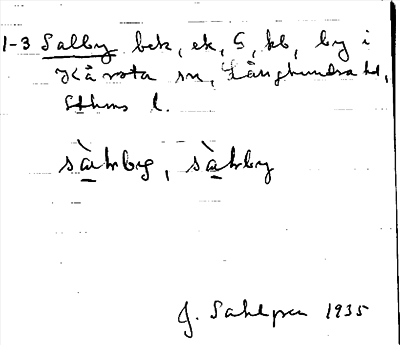 1-3 Salby bek, ek, G, kb, by i
Kårsta sn, Långhundra hd,
Sthms l.
sàlrby, sàlrby
J. Sahlgren 1935